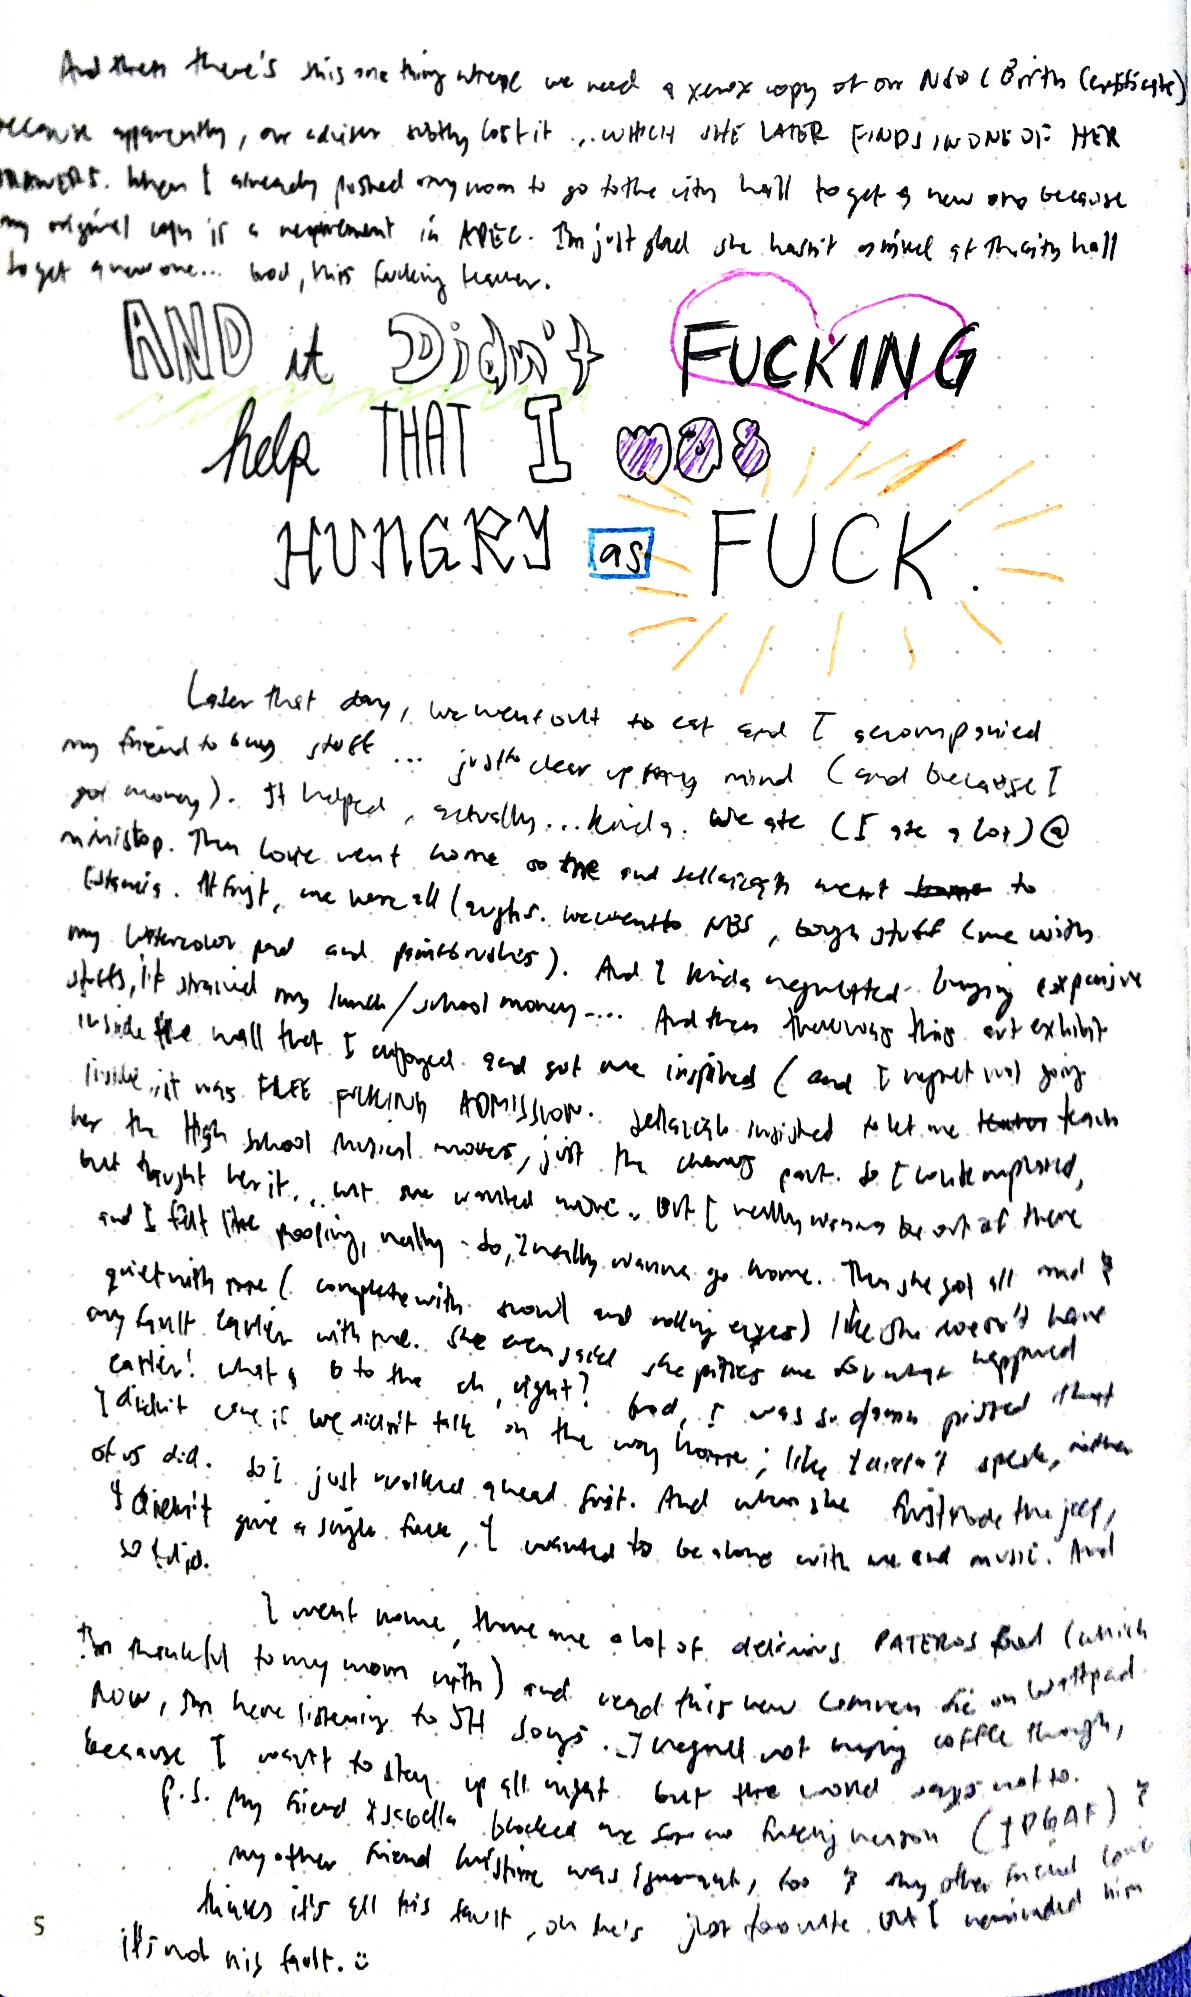 And then there's this one thing where we need a xerox copy of our NSO (Birth Certificate)
because apparently, our adviser subtly lost it ... WHICH SHE LATER FINDS IN ONE OF HER
DRAWERS. When I already pushed my mom to go to the city hall to get a new one because
my original copy is a requirement in APEC. I'm just glad she hasn't arrived at the city hall
to get a new one... God, this fucking teacher.
AND it Didn't FUCKING
help THAT I was
HUNGRY as FUCK.
Later that day, we went out to eat and I accompanied
my friend to buy stuff ... just to clear up my mind (and because I
got money). It helped, actually... kinda. We ate (I ate a lot) @
ministop. Then Louie went home so me and went to
. At first, we were all laughs. We went to NBS, bough stuff (me with
my watercolor pad and paintbrushes). And I kinda regretted buying expensive
stuffs, it strained my lunch/school money.... And then there was this art exhibit
inside the mall that I enjoyed and got me inspired (and I regret not going
inside, it was FREE FUCKING ADMISSION. insisted to let me teach
her the High School Musical moves, just the chorus part. So I
but taught her it... but she wanted more. But I really wanna be out of there
and I felt like pooping, really - so, I really wanna go home. Then she got all mad &
quiet with me (complete with and rolling eyes) like she doesn't have
any fault earlier with me. She even said she pities me for what happened
earlier! What a b to the ch, right? God, I was so damn pissed that
I didn't care if we didn't talk on the way home; like I didn't speak, neither
of us did. So I just walked ahead first. And when she first rode the jeep,
I didn't give a single fuck, I wanted to be alone with me and music. And
so I did.
I went home, there are a lot of delicious PATEROS food (which
I'm thankful to my mom with) and read this new fic on Wattpad.
Now, I'm here listening to 5H songs. I regret not buying coffee though,
because I want to stay up all night but the world says not to.
P.S. My friend Isabella blocked me for no fucking reason (IDGAF) &
my other friend was ignorant, too & my other friend Louie
thinks it's all his fault, oh he's just But I reminded him
it's not his fault. :)
5